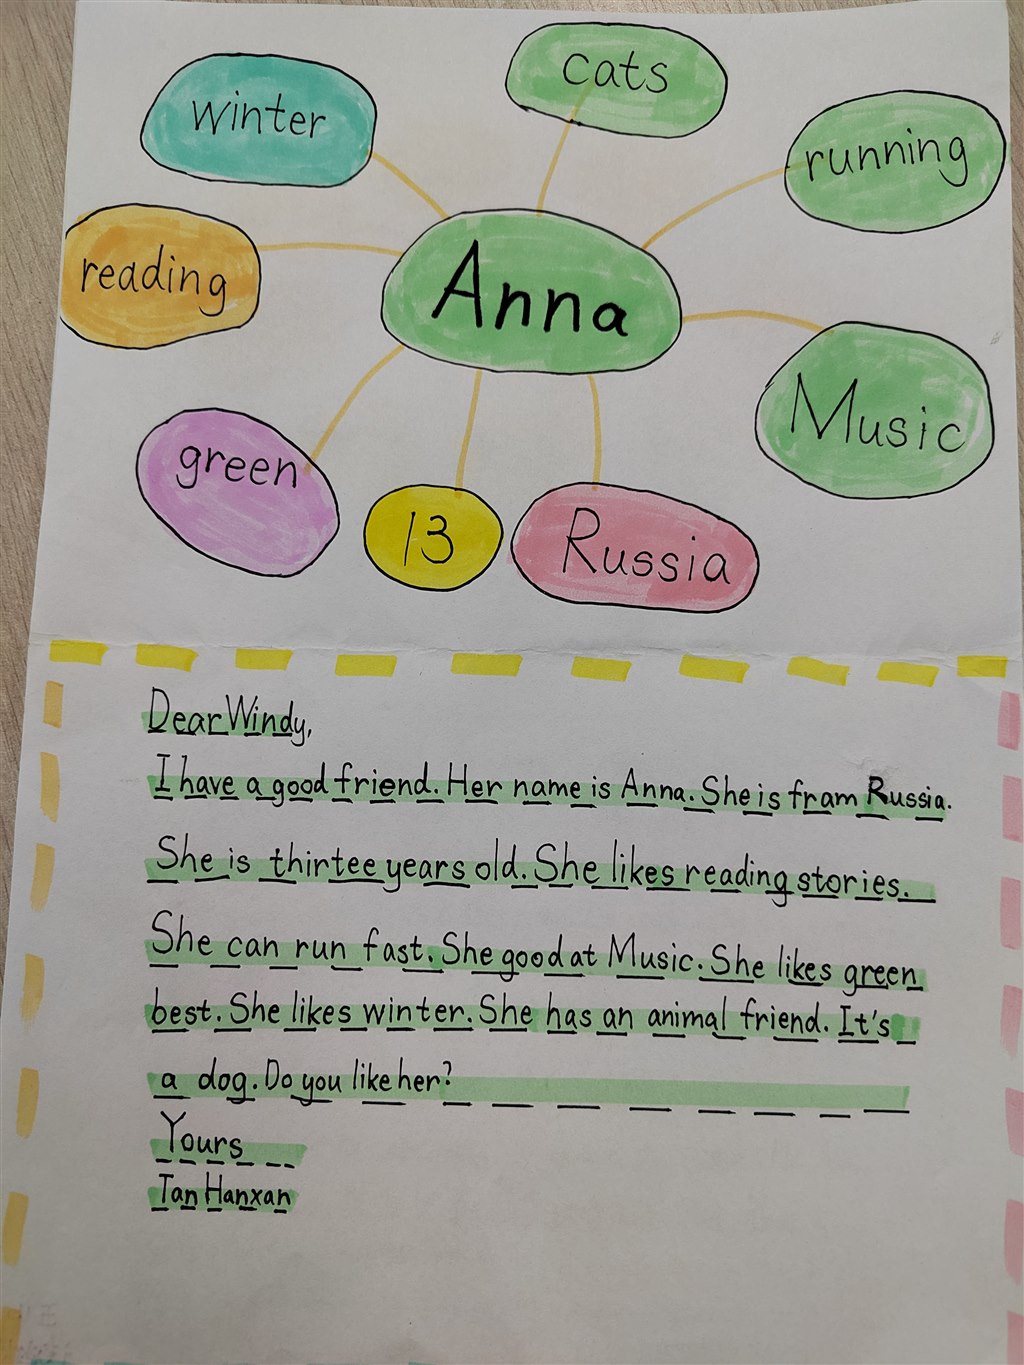 cats
winter
running
reading
Anna
Music
green
13
Russia
Dear Windy,
I have a good friend. Her name is Anna. She is fram Russia.
She is thirtee years old. She likes reading stories.
She can run fast. She good at Music. She likes green
best. She likes winter. She has an animal friend. It's
a dog. Do you like her?
Yours
Tan Hanxan